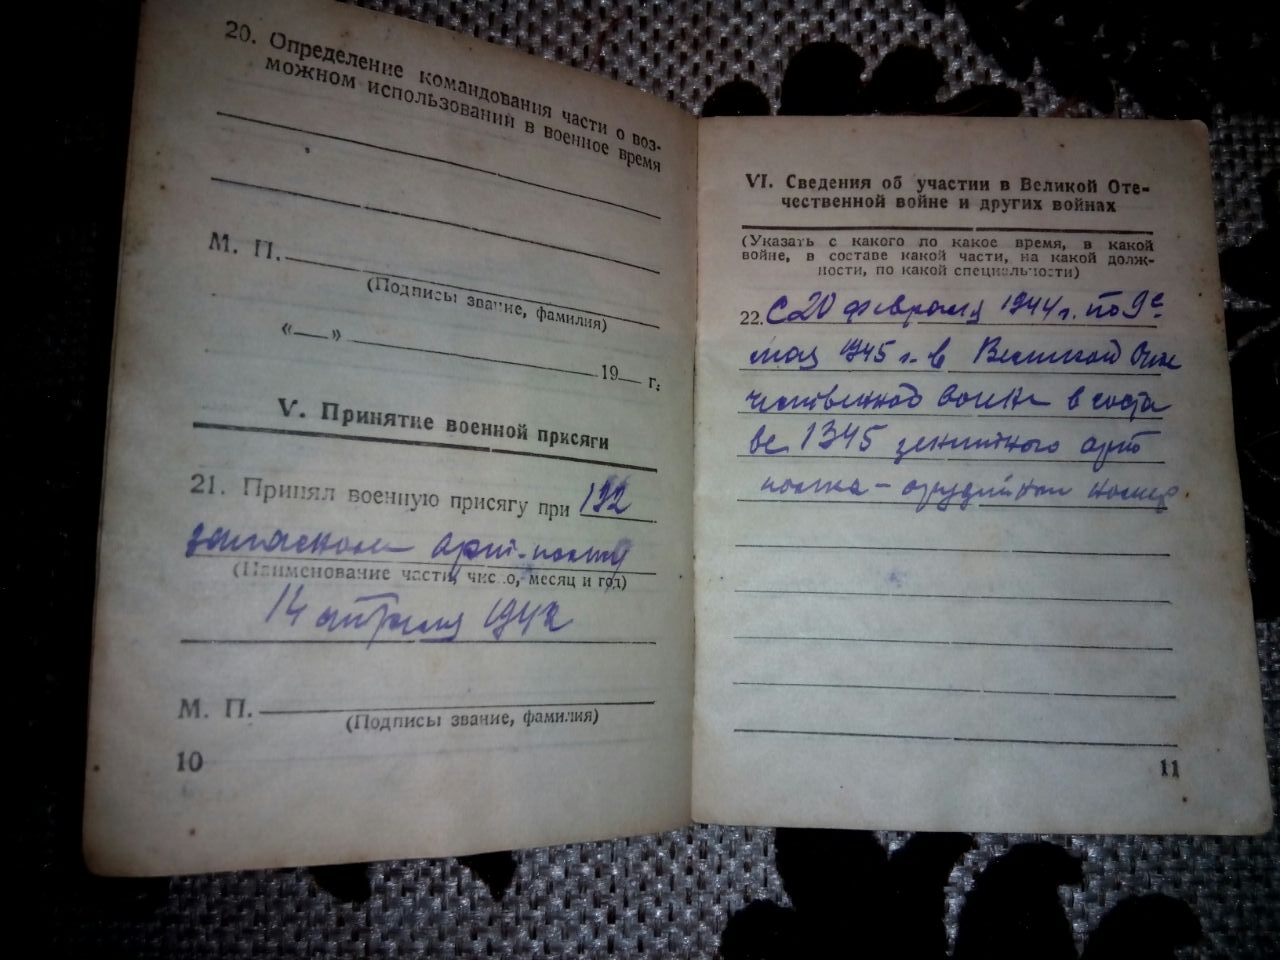 20. Определение командования части о воз-
можном использовании в военное время
М. П.
(Подписы звание, фамилия)
«—» 19— г.
V. Принятие военной присяги
21. Принял военную присягу при
запасном арт. полку
(Наименование части, число, месяц и год)
14 апреля
М. П.
(Подписы звание, фамилия)
10
VI. Сведения об участии в Великой Оте-
чественной войне и других войнах
(Указать с какого по какое время, в какой
войне, в составе какой части, на какой долж-
ности, по какой специальности)
22. С 20 февраля 1944 г. по 9е
мая 1945 г. в Великой Оте
чественной войне в соста
ве 1345 зенитного арт
полка – орудийный номер
11